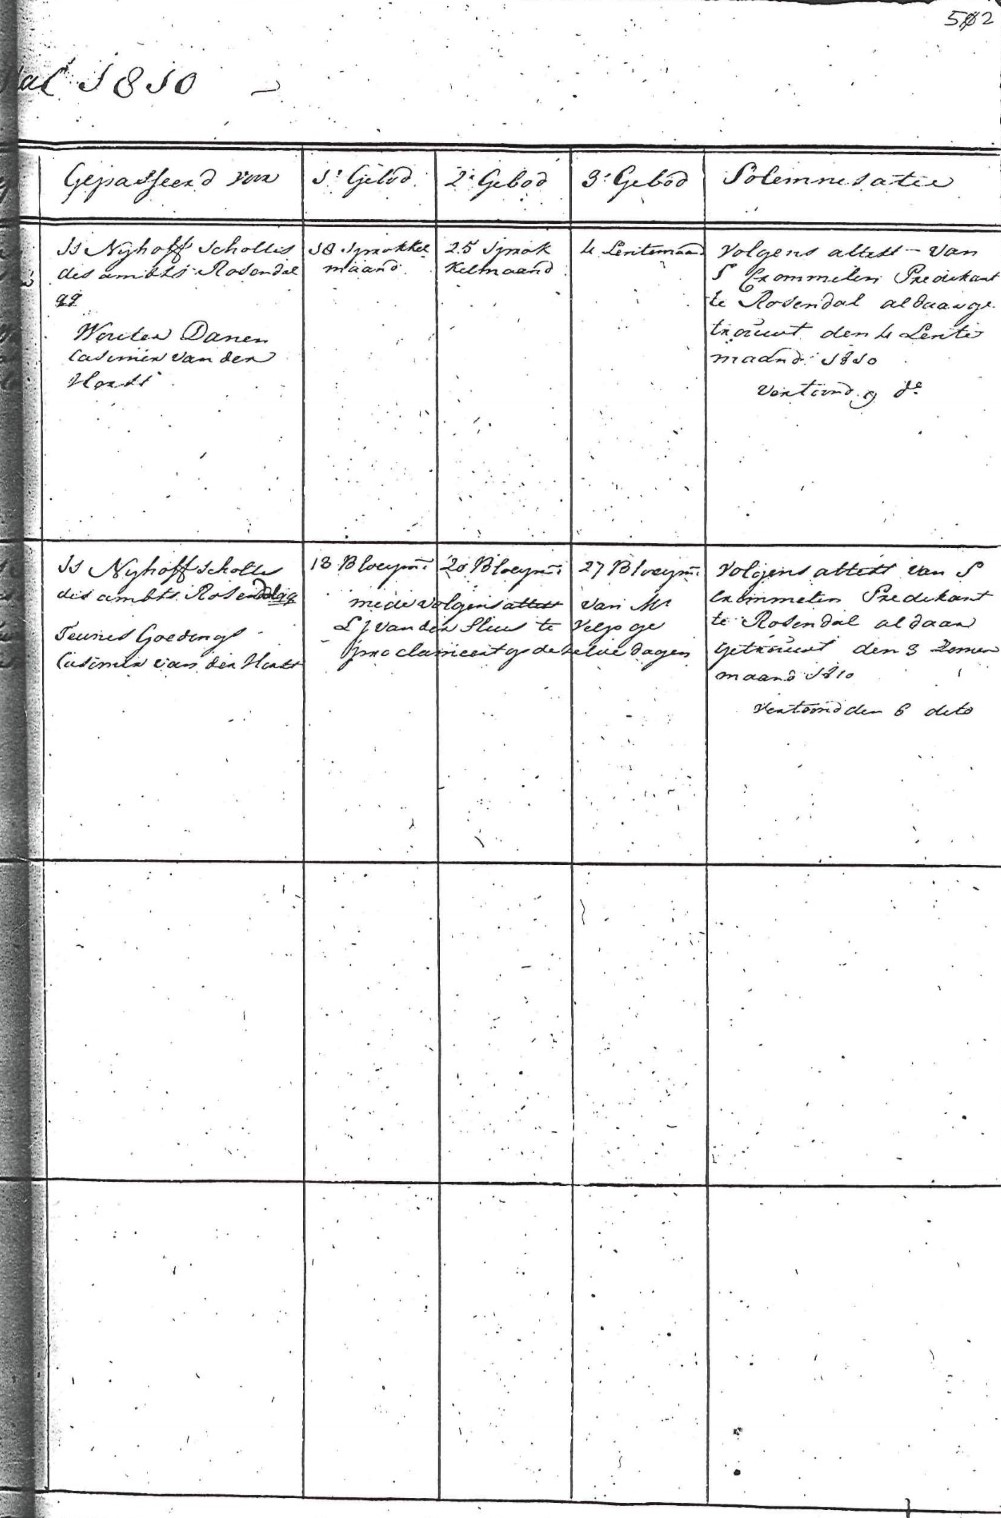 502
dal 1810
Gepasseerd voor
1e Gebod
2e Gebod
3e Gebod
Solemnisatie
Is Nyhoff Scholtis
des ambts Rosendal
qq
Wouter Danen
Casimier van den
Horst
18 Sprokkel
maand
25 Sprok
kelmaand
4 Lentemaand
Volgens attest van
S Crommelin Predikant
te Rosendal aldaar ge
trouwt den 4 Lente
maand 1810
Vertoond 9 do
Is Nyhoff Scholtis
des ambts Rosendal qq
Teunes Goedings
Casimier van den Horst
13 Bloeym
20 Bloeym
27 Bloeym
mede volgens attest van Mr
L J van der Sluis te Velp ge
proclameert op dezelve dagen
Volgens attest van S
Crommelin Predikant
te Rosendal aldaar
getrouwt den 3 Zomer
maand 1810
Vertoond den 6 dito